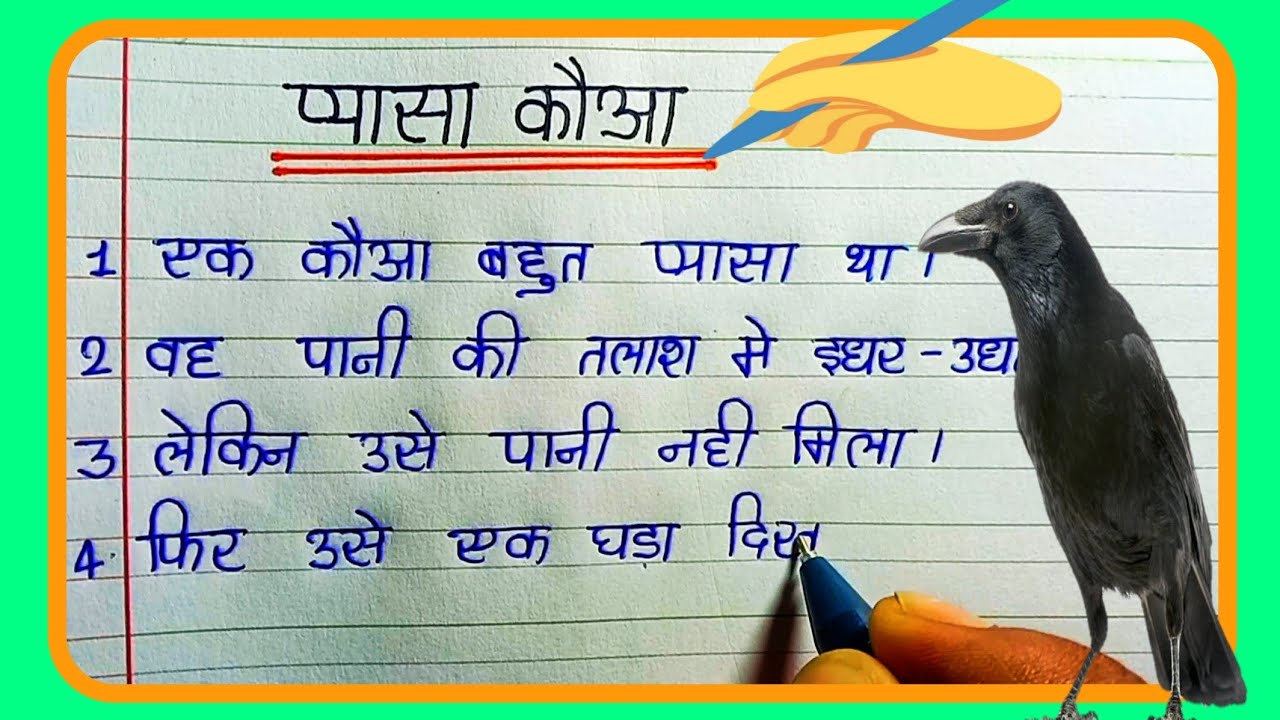 प्यासा कौआ
1 एक कौआ बहुत प्यासा था ।
2 वह पानी की तलाश मे इधर - उधर
3 लेकिन उसे पानी नही मिला ।
4. फिर उसे एक घड़ा दिख